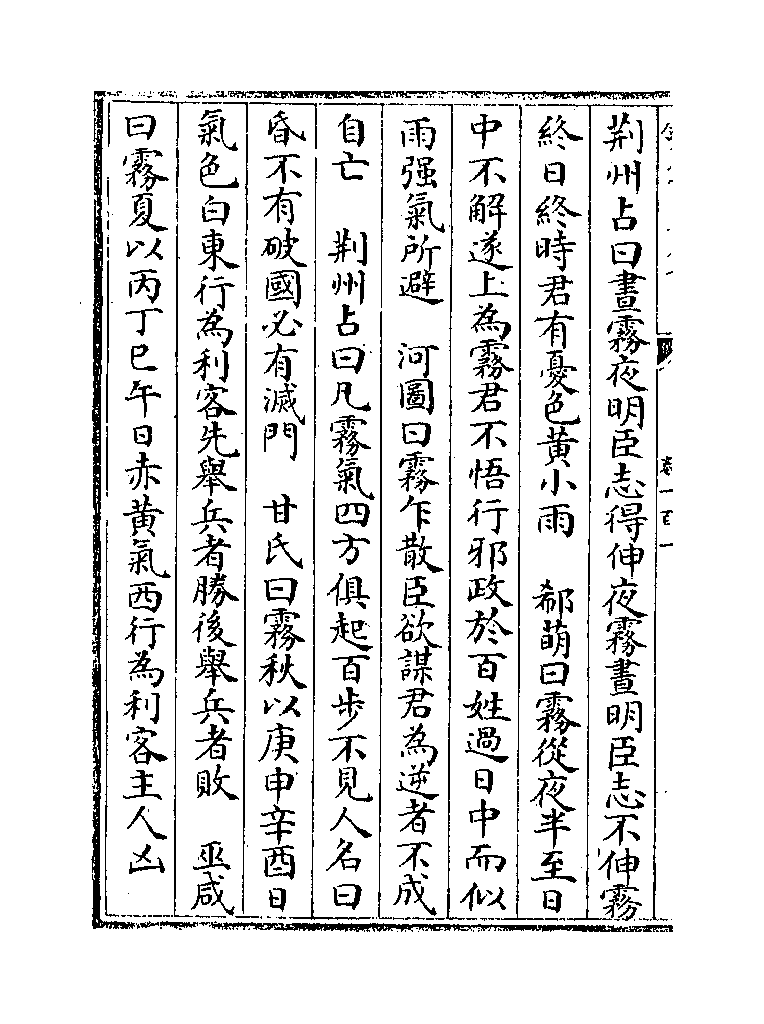 卷一百一
荆州占曰晝霧夜明臣志得伸夜霧晝明臣志不伸霧
終日終時君有憂色黄小雨　郗萌曰霧從夜半至日
中不解遂上為霧君不悟行邪政於百姓過日中而似
雨强氣所避　河圖曰霧乍散臣欲謀君為逆者不成
自亡　荆州占曰凡霧氣四方俱起百步不見人名曰
昏不有破國必有滅門　甘氏曰霧秋以庚申辛酉日
氣色白東行為利客先舉兵者勝後舉兵者敗　巫咸
曰霧夏以丙丁巳午日赤黄氣西行為利客主人凶